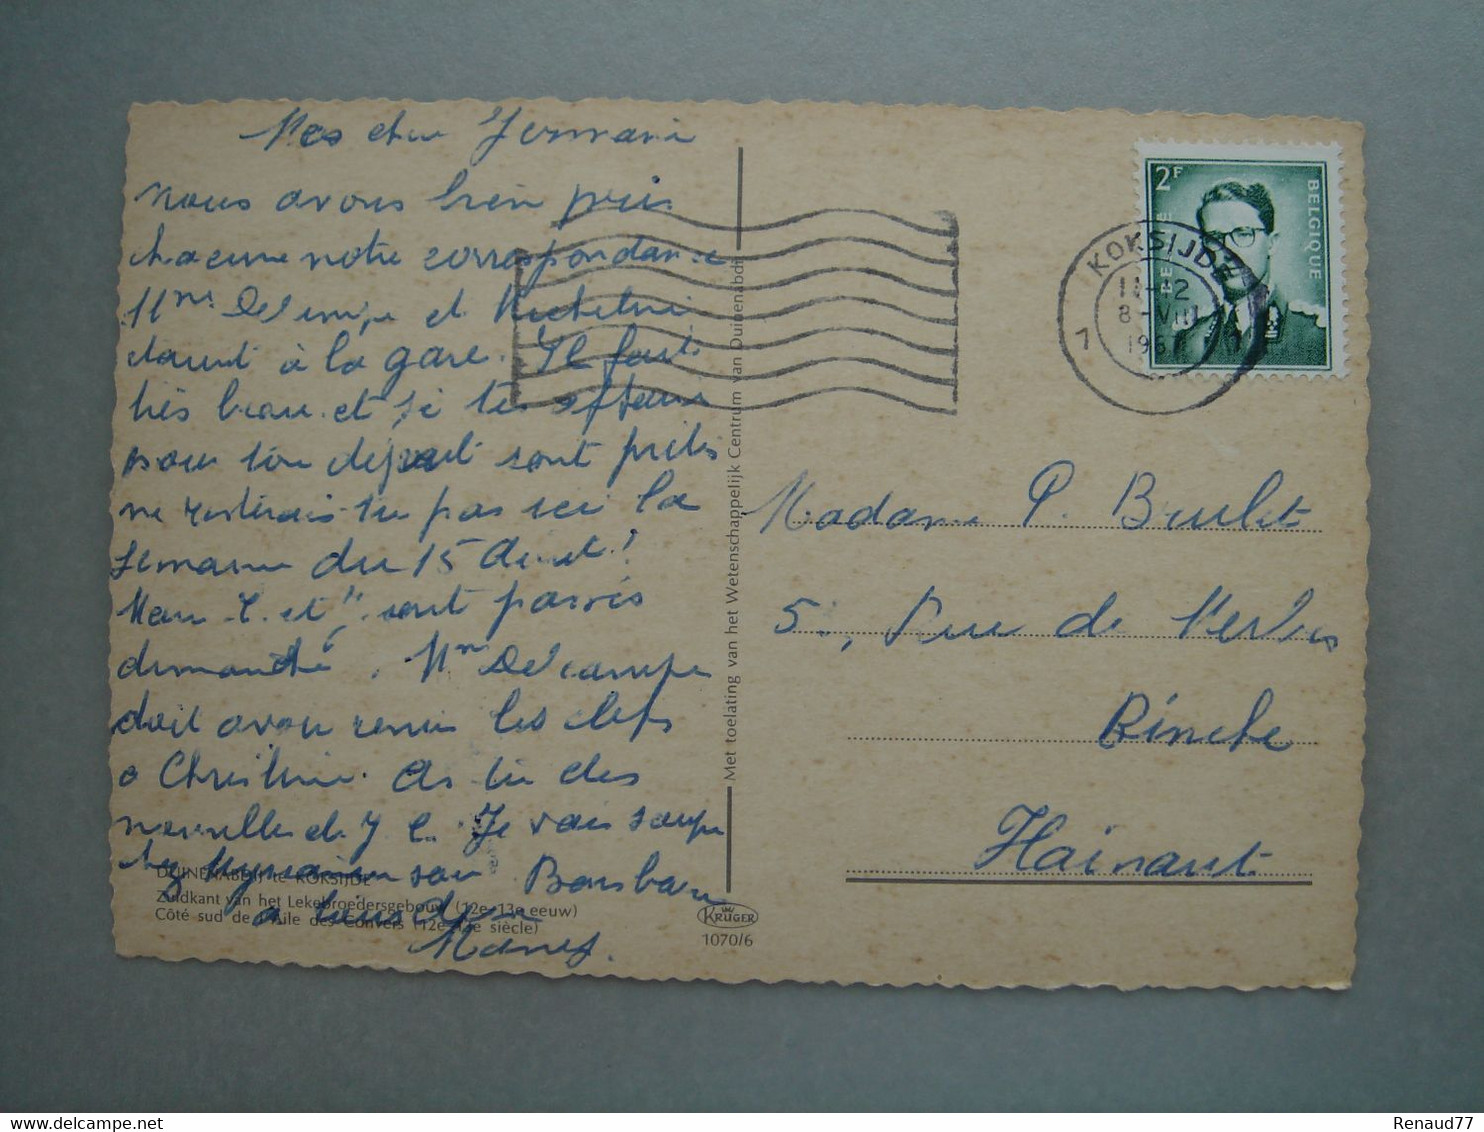 Mes cher Germaine
nous avons bien pris
chacune notre correspondance
Mme Delcampe et Micheline
étaient à la gare. Il fait
très beau et si tes
pour ton départ sont prêts
ne resterais tu pas ici la
semaine du 15 Aout!
sont passés
dimanche. Mme Delcampe
doit avoir remis les clefs
a Christine. As tu des
nouvelles de J C. Je vais souper
chez soir Barbara
a
DUINENABDIJ te KOKSIJDE
Zuidkant van het Lekebroedersgebouw (12e-13e eeuw)
Côté sud de l'aile des Convers (12e-13e siècle)
Met toelating van het Wetenschappelijk Centrum van Duinenabdij
KRÜGER
1070/6
2F
BELGIQUE
BELGIE
KOKSIJDE
11-12
8-VIII
196
7
Madame P. Brulet
5, Rue de
Binche
Hainaut
Renaud77
delcampe.net